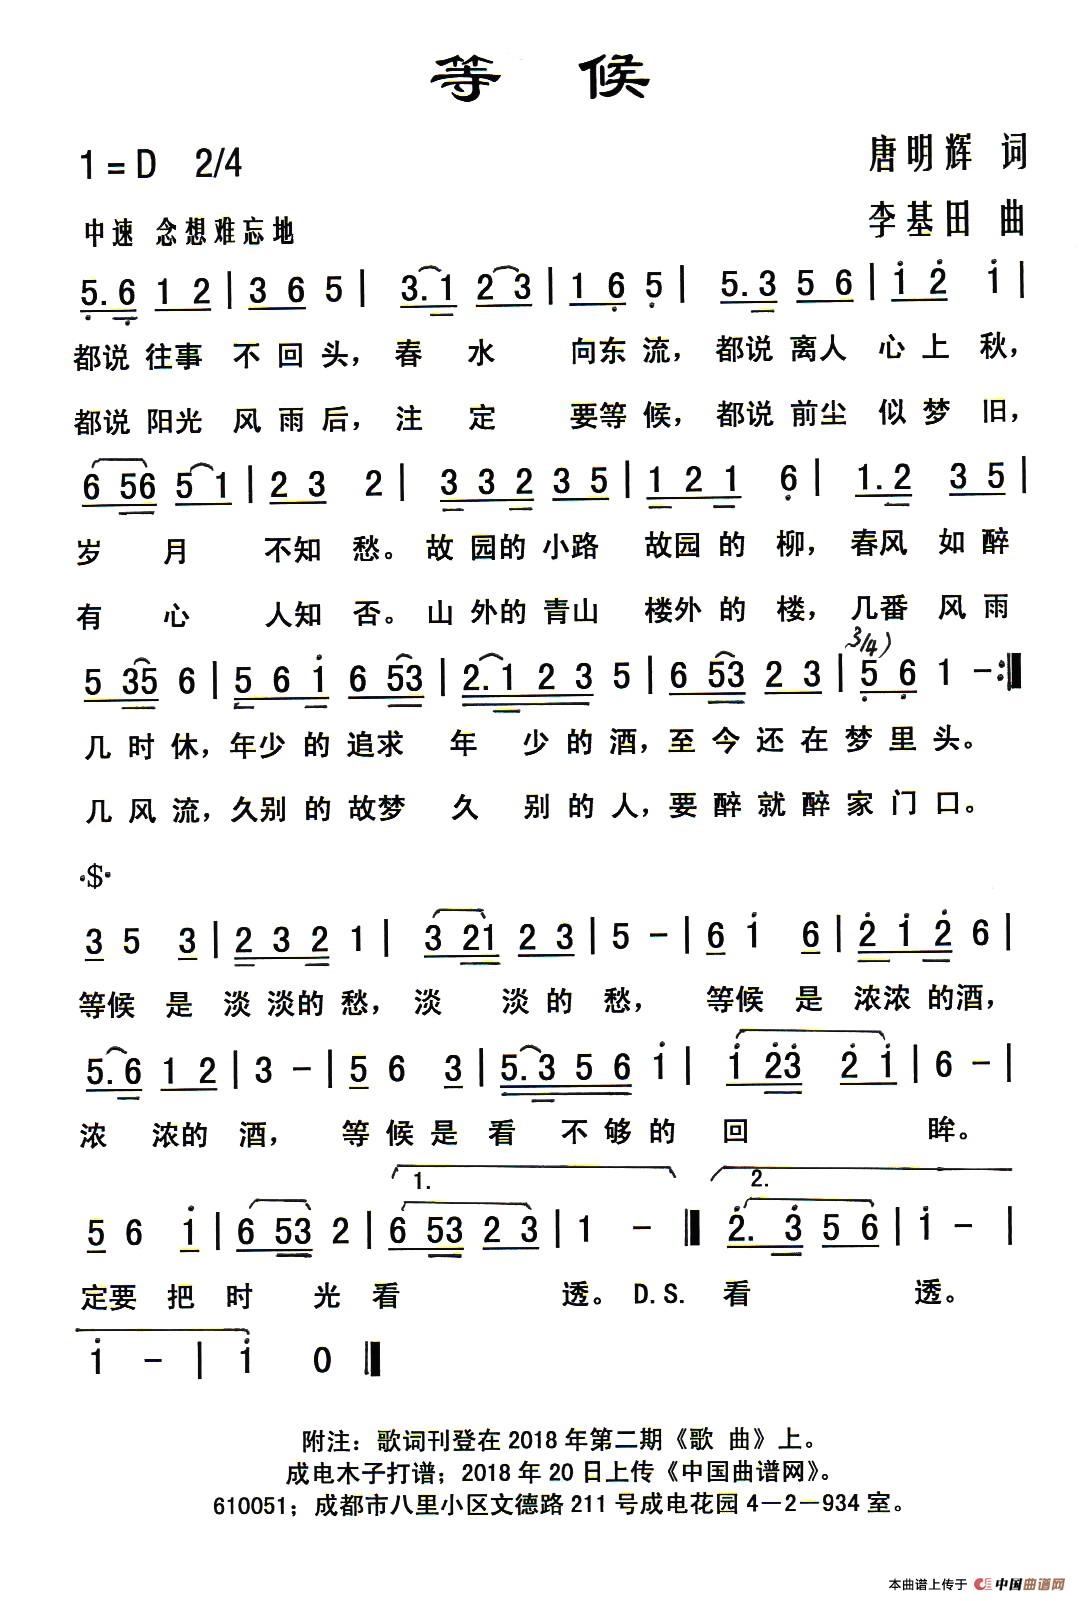 等 候
1=D 2/4
唐明辉 词
中速 念想难忘地
李基田 曲
5.6 1 2 | 3 6 5 | 3.1 2 3 | 1 6 5 | 5.3 5 6 | 1 2 1 |
都说 往事 不 回 头， 春 水 向东 流， 都说 离人 心 上 秋，
都说 阳光 风 雨 后， 注 定 要等 候， 都说 前尘 似 梦 旧，
6 56 5 1 | 2 3 2 | 3 3 2 3 5 | 1 2 1 6 | 1.2 3 5 |
岁 月 不知 愁。 故 园的 小路 故园 的 柳， 春风 如 醉
有 心 人知 否。 山 外的 青山 楼外 的 楼， 几番 风 雨
3/4)
5 35 6 | 5 6 1 6 53 | 2.1 2 3 5 | 6 53 2 3 | 5 6 1 - :||
几 时 休， 年少 的 追求 年 少 的 酒， 至 今 还 在 梦 里 头。
几 风 流， 久别 的 故梦 久 别 的 人， 要 醉 就 醉 家 门 口。
·$·
3 5 3 | 2 3 2 1 | 3 21 2 3 | 5 - | 6 1 6 | 2 1 2 6 |
等候 是 淡 淡的 愁， 淡 淡 的 愁， 等候 是 浓浓 的酒，
5.6 1 2 | 3 - | 5 6 3 | 5.3 5 6 1 | 1 23 2 1 | 6 - |
浓 浓的 酒， 等 候 是 看 不 够 的 回 眸。
1. 2.
5 6 1 | 6 53 2 | 6 53 2 3 | 1 - || 2. 3 5 6 | 1 - |
定要 把 时 光 看 透。 D.S. 看 透。
1 - | 1 0 ||
附注：歌词刊登在 2018 年第二期《歌 曲》上。
成电木子打谱；2018 年 20 日上传《中国曲谱网》。
610051；成都市八里小区文德路 211 号成电花园 4－2－934 室。
本曲谱上传于 中国曲谱网